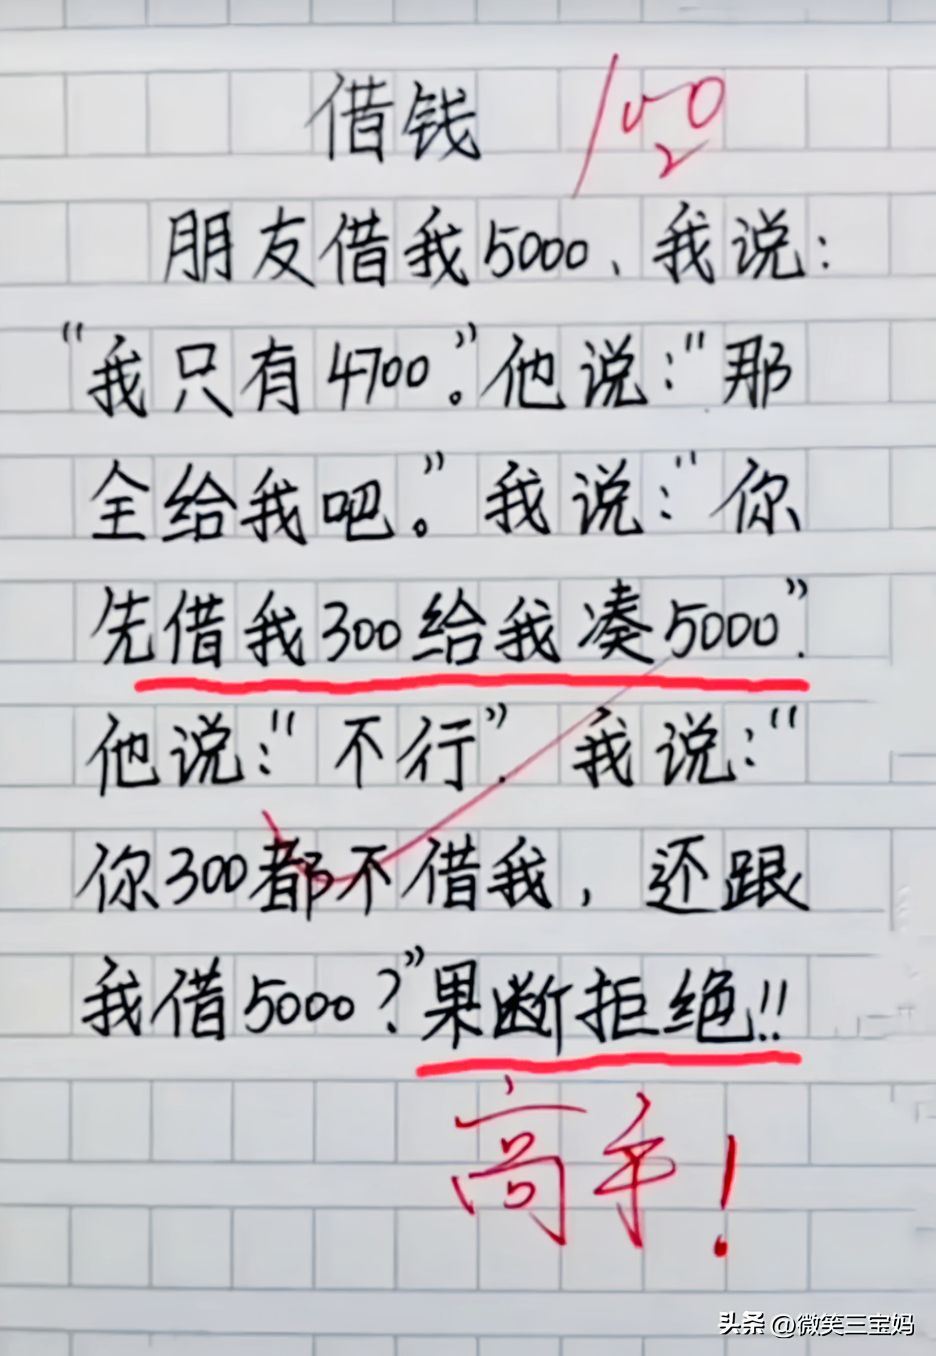 借钱 100
朋友借我5000、我说:
“我只有4700”。他说:“那
全给我吧。”我说:“你
先借我300给我凑5000”.
他说:“不行”.我说:“
你300都不借我,还跟
我借5000?”果断拒绝!!
高手!
头条 @微笑三宝妈